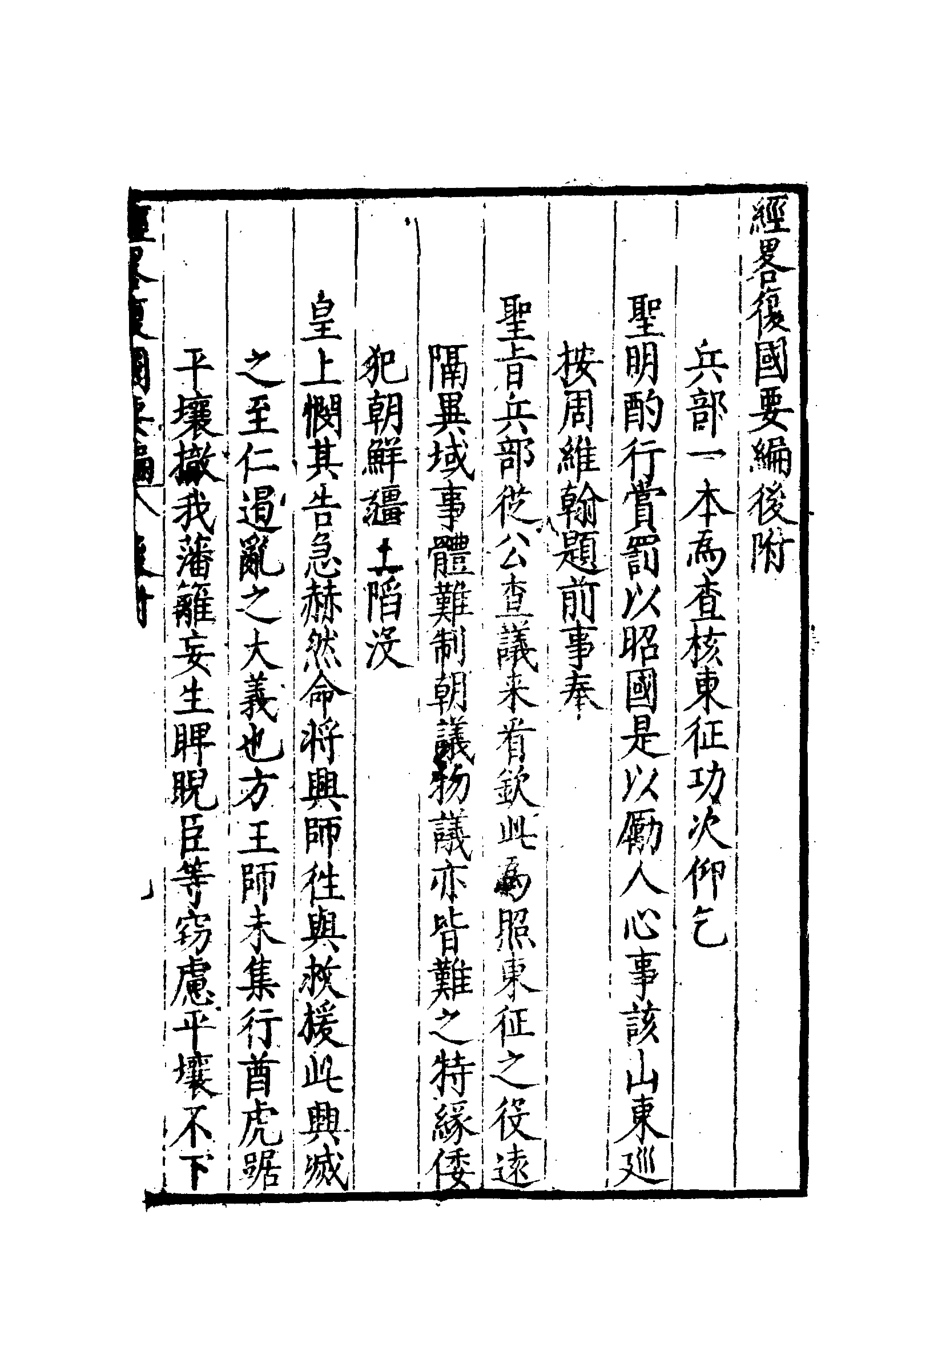 經畧復國要編後附
兵部一本為查核東征功次仰乞
聖明酌行賞罰以昭國是以勵人心事該山東廵
按周維翰題前事奉
聖旨兵部從公查議来看欽此為照東征之役遠
隔異域事體難制朝議物議亦皆難之特緣倭
犯朝鮮疆土陷沒
皇上憫其告急赫然命将興師徃與救援此興滅
之至仁遏亂之大義也方王師未集行酋虎踞
平壤撤我藩籬妄生睥睨臣等窃慮平壤不下
經畧復國要編 後附